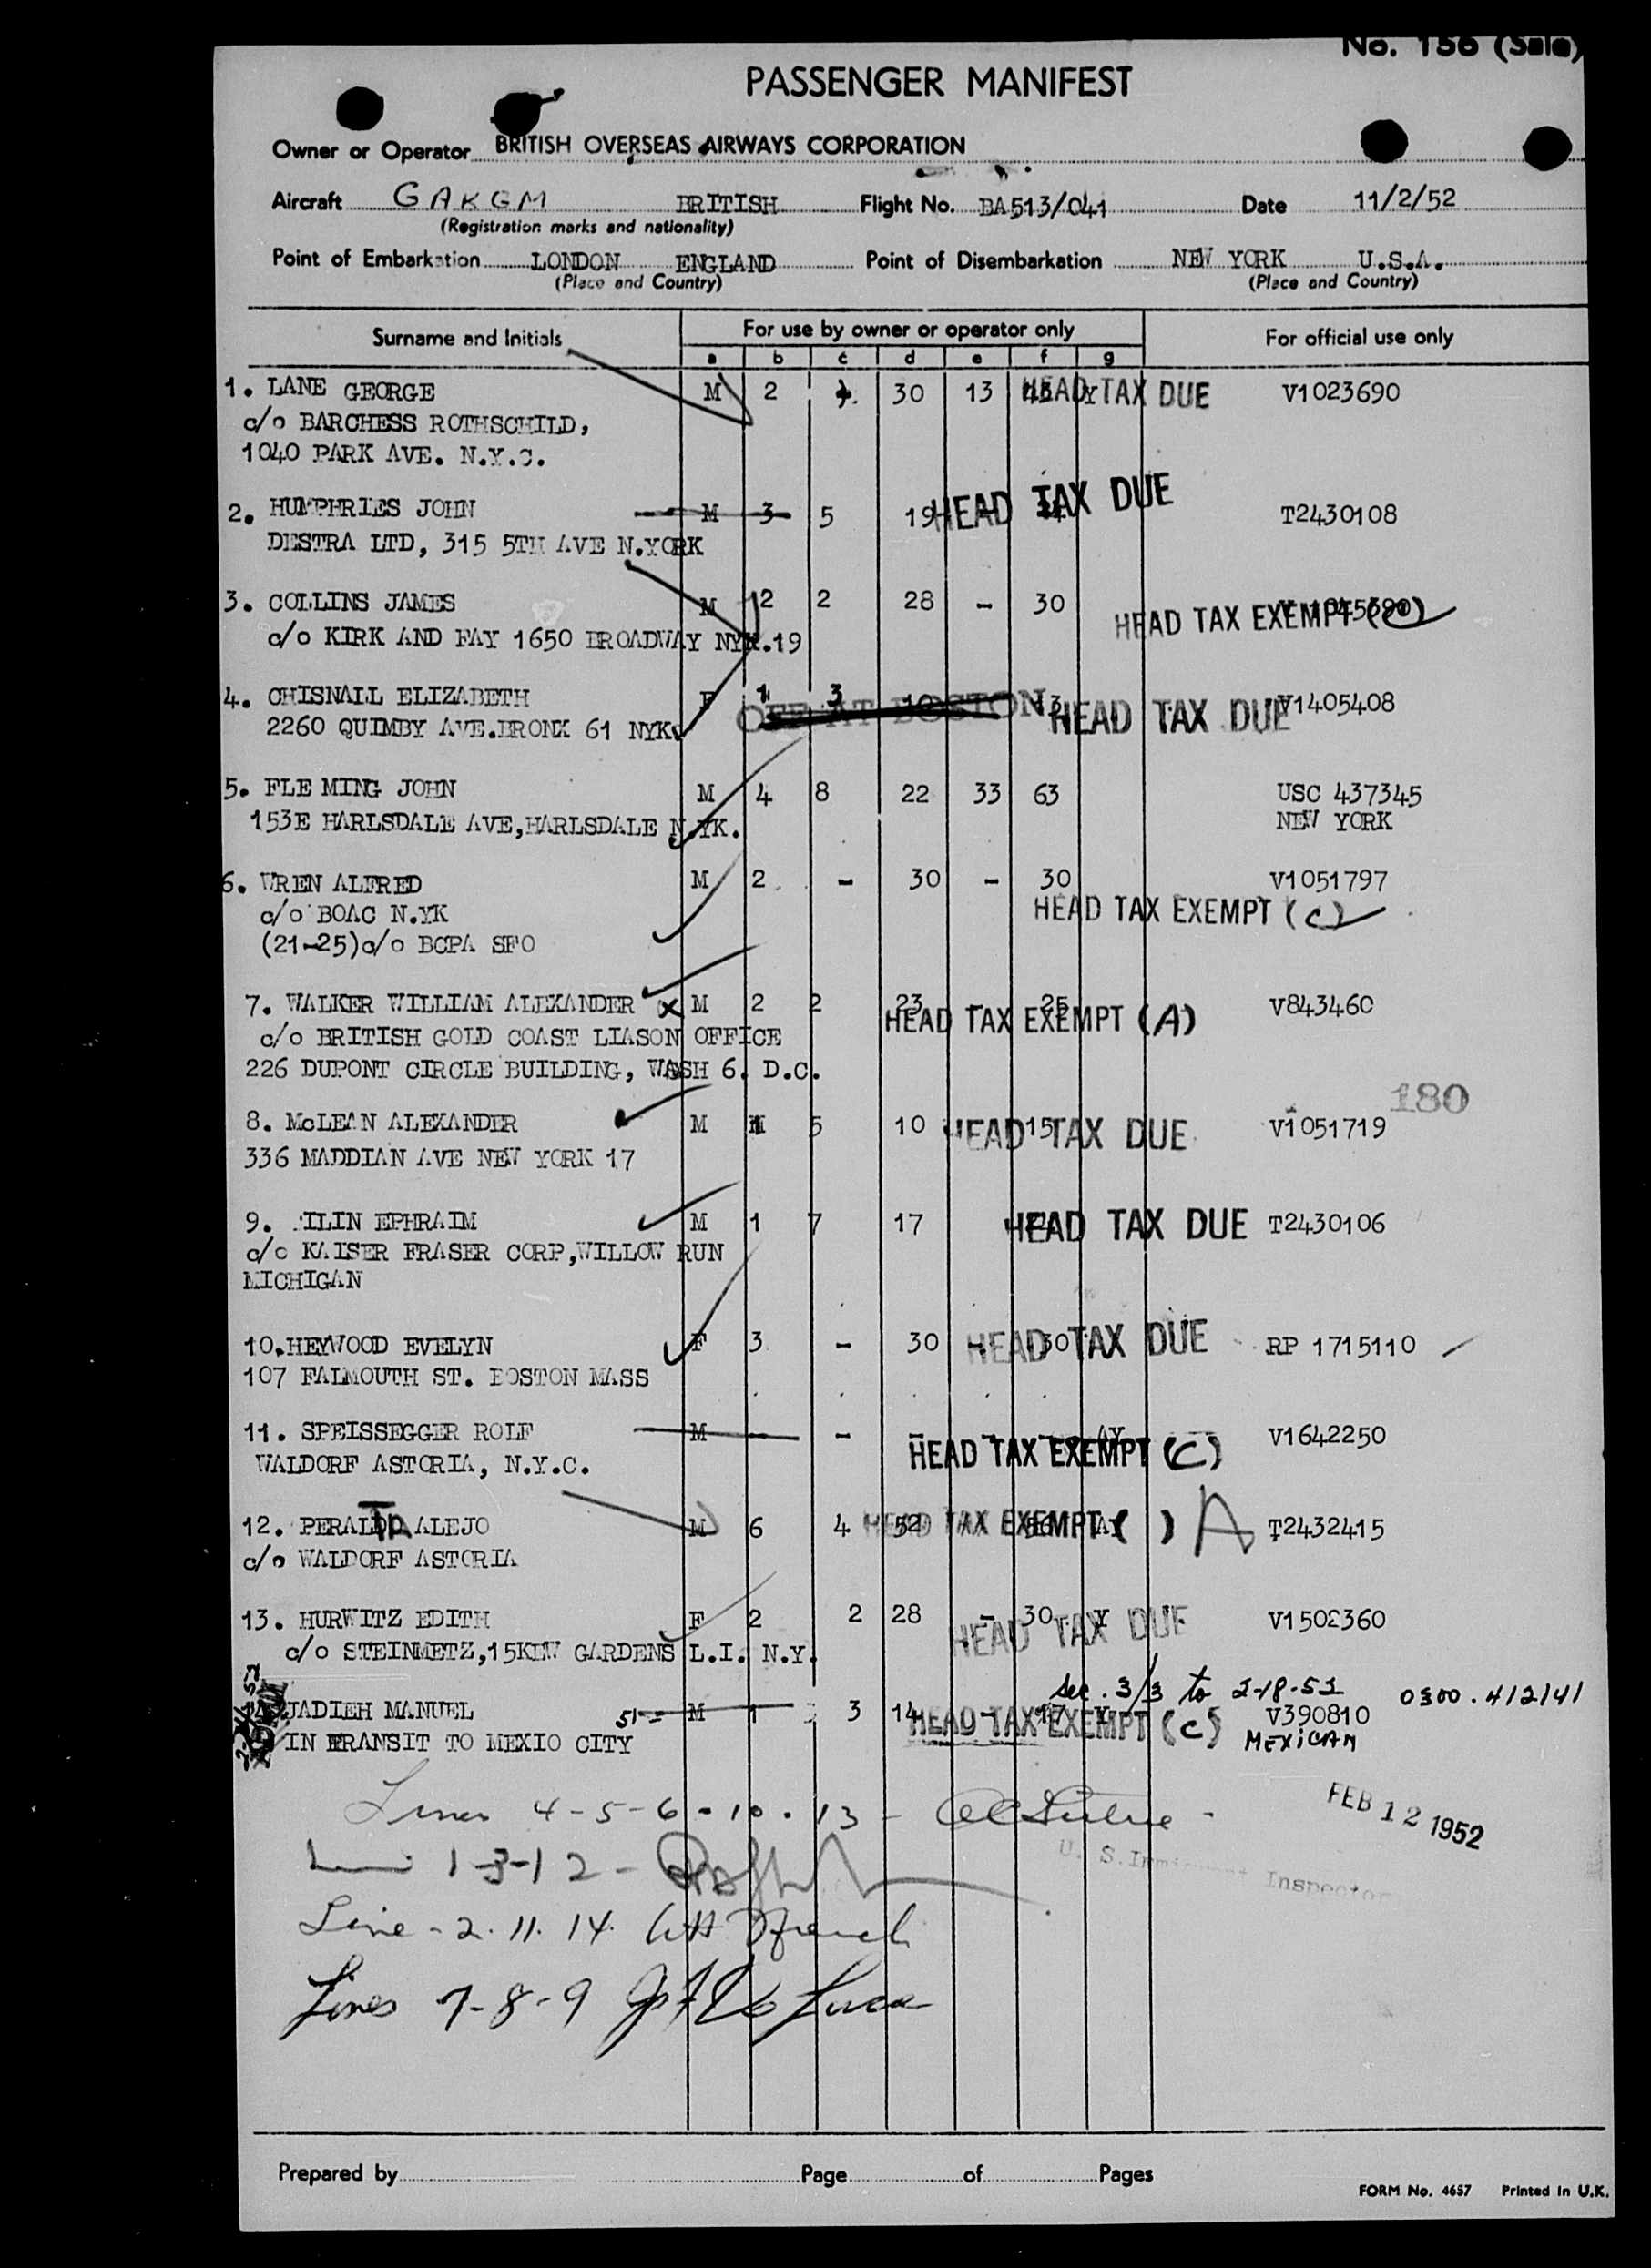 No. 156 (Sale)
PASSENGER MANIFEST
Owner or Operator BRITISH OVERSEAS AIRWAYS CORPORATION
Aircraft GAKGM BRITISH Flight No. BA513/041 Date 11/2/52
(Registration marks and nationality)
Point of Embarkation LONDON ENGLAND Point of Disembarkation NEW YORK U.S.A.
(Place and Country) (Place and Country)
Surname and Initials For use by owner or operator only For official use only
a b c d e f g
1. LANE GEORGE M 2 30 13 HEAD TAX DUE V1023690
c/o BARCHESS ROTHSCHILD,
1040 PARK AVE. N.Y.C.
2. HUMPHRIES JOHN M 3 5 19 HEAD TAX DUE T2430108
DESTRA LTD, 315 5TH AVE N.YORK
3. COLLINS JAMES M 2 2 28 - 30
HEAD TAX EXEMPT
c/o KIRK AND FAY 1650 BROADWAY NYK.19
4. CHISNALL ELIZABETH F 1 3 OFF AT BOSTON HEAD TAX DUE V1405408
2260 QUIMBY AVE.BRONX 61 NYK
5. FLE MING JOHN M 4 8 22 33 63 USC 437345
153E HARLSDALE AVE,HARLSDALE N.YK. NEW YORK
6. WREN ALFRED M 2 - 30 - 30 V1051797
c/o BOAC N.YK HEAD TAX EXEMPT (C)
(21-25)c/o BCPA SFO
7. WALKER WILLIAM ALEXANDER X M 2 2 23 - 25 V843460
HEAD TAX EXEMPT (A)
c/o BRITISH GOLD COAST LIASON OFFICE
226 DUPONT CIRCLE BUILDING, WASH 6. D.C.
180
8. McLEAN ALEXANDER M 5 10 15 HEAD TAX DUE V1051719
336 MADDIAN AVE NEW YORK 17
9. ILIN EPHRAIM M 1 7 17 HEAD TAX DUE T2430106
c/o KAISER FRASER CORP,WILLOW RUN
MICHIGAN
10.HEYWOOD EVELYN F 3 - 30 - 30 HEAD TAX DUE RP 1715110
107 FALMOUTH ST. BOSTON MASS
11. SPEISSEGGER ROLF M - - - - - V1642250
HEAD TAX EXEMPT (C)
WALDORF ASTORIA, N.Y.C.
12. PERALTA ALEJO M 6 4 52 HEAD TAX EXEMPT ( ) A T2432415
c/o WALDORF ASTORIA
13. HURWITZ EDITH F 2 2 28 - 30 Y HEAD TAX DUE V1502360
c/o STEINMETZ,15KEW GARDENS L.I. N.Y.
sec. 3/3 to 2-18-52 0300.412141
14 JADIEH MANUEL M 1 3 14 - 17 V390810
HEAD TAX EXEMPT (C) MEXICAN
IN TRANSIT TO MEXIO CITY
Lines 4-5-6-10-13-
FEB 12 1952
1-3-12-
U. S. Immigrant Inspector
Line-2.11.14. French
Lines 7-8-9
Prepared by Page of Pages
FORM No. 4657 Printed in U.K.